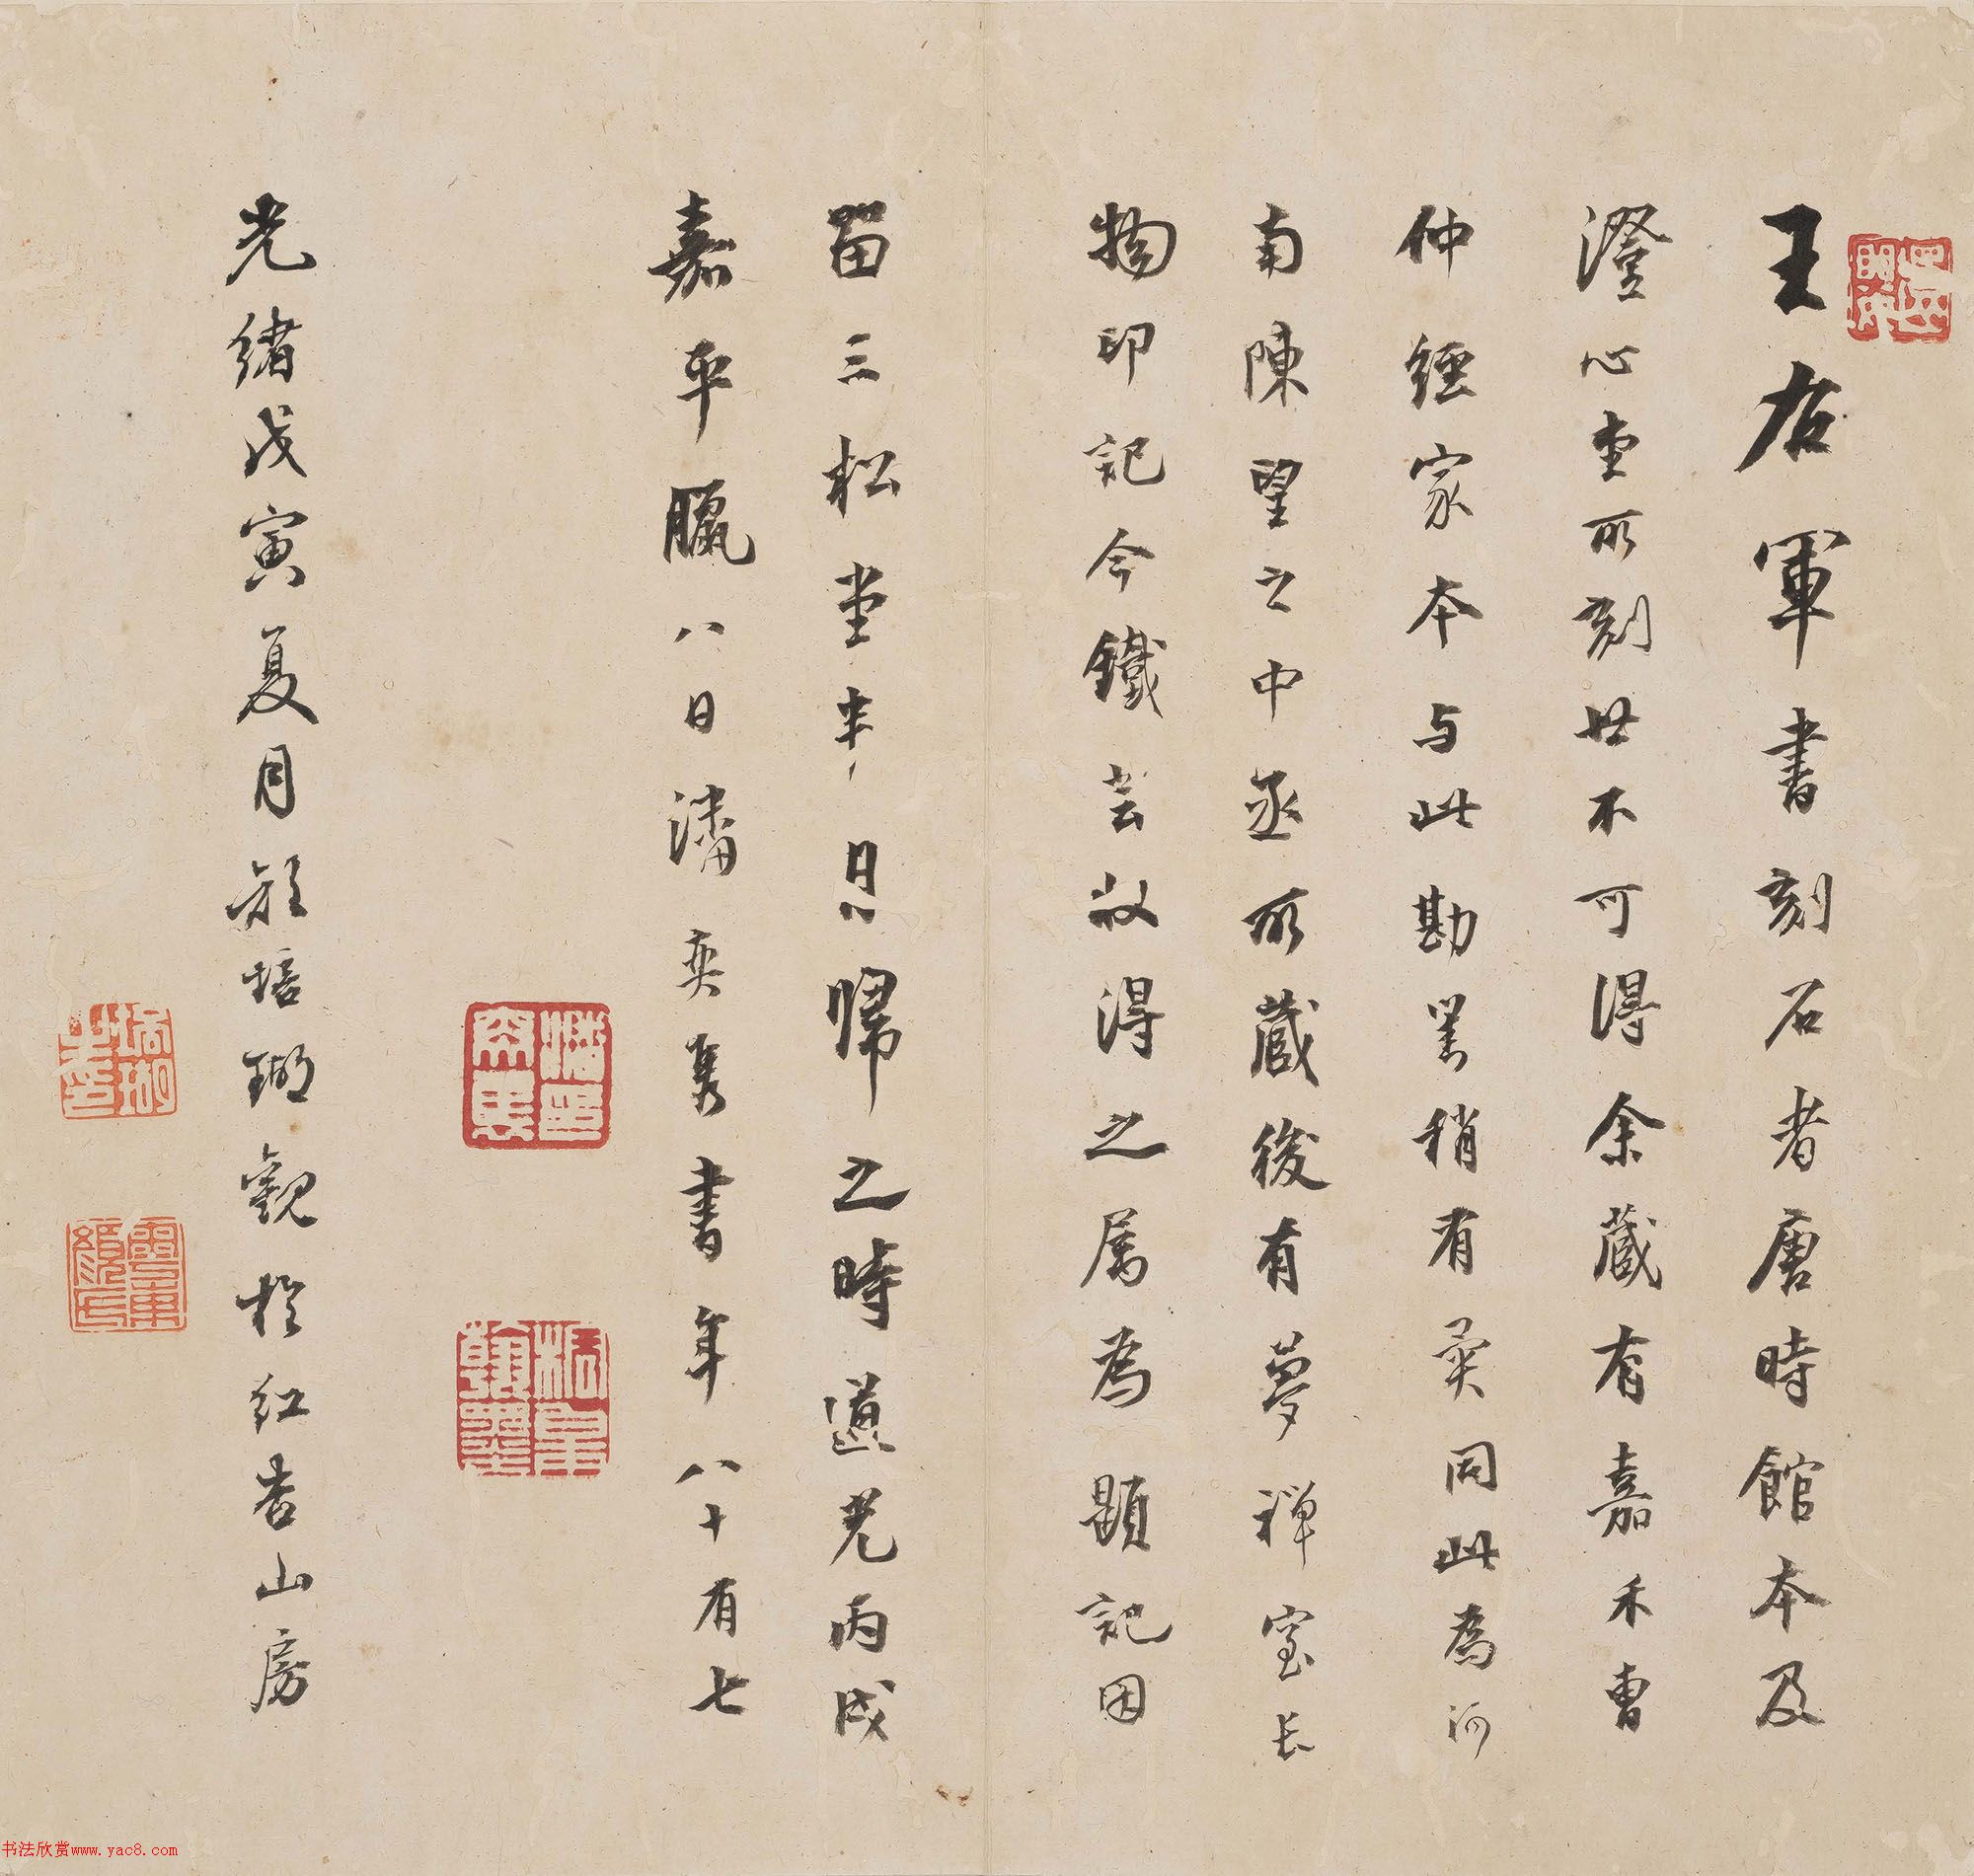 王右軍書刻石者唐時館本及
澄心堂所刻世不可得余藏有嘉禾曹
仲經家本与此勘對稍有異同此為河
南陳望之中丞所藏後有夢禪室長
物印記今鐵芸叔得之屬為題記因
留三松堂半月歸之時道光丙戌
嘉平臘八日潘奕雋書年八十有七
光緒戊寅夏月顏培瑚觀於紅杏山房
书法欣赏www.yac8.com